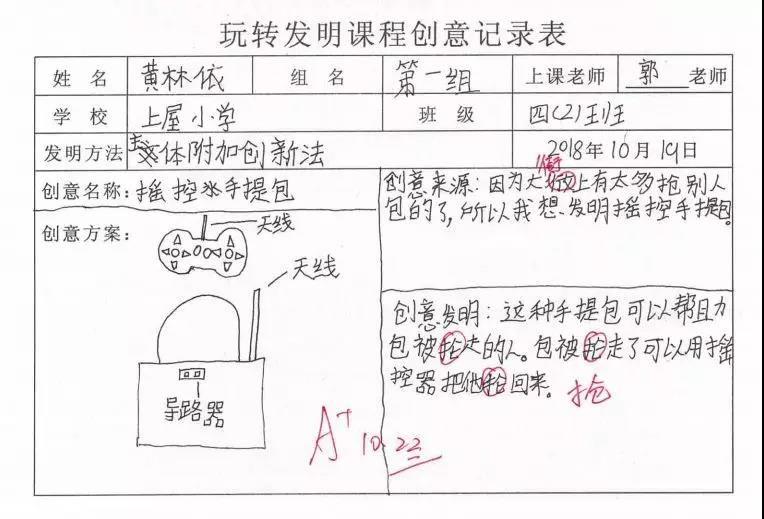 玩转发明课程创意记录表
姓 名 黄林依 组 名 第一组 上课老师 郭 老师
学 校 上屋小学 班 级 四(2)班
发明方法 主体附加创新法 2018年10月19日
创意名称: 摇控手提包
创意方案:
天线
天线
导路器
街
创意来源: 因为大上有太多抢别人
包的了,所以我想发明摇控手提包。
创意发明: 这种手提包可以帮助
包被抡走的人。包被抡走了可以用摇
控器把他抡回来。
抢
A+ 10.22